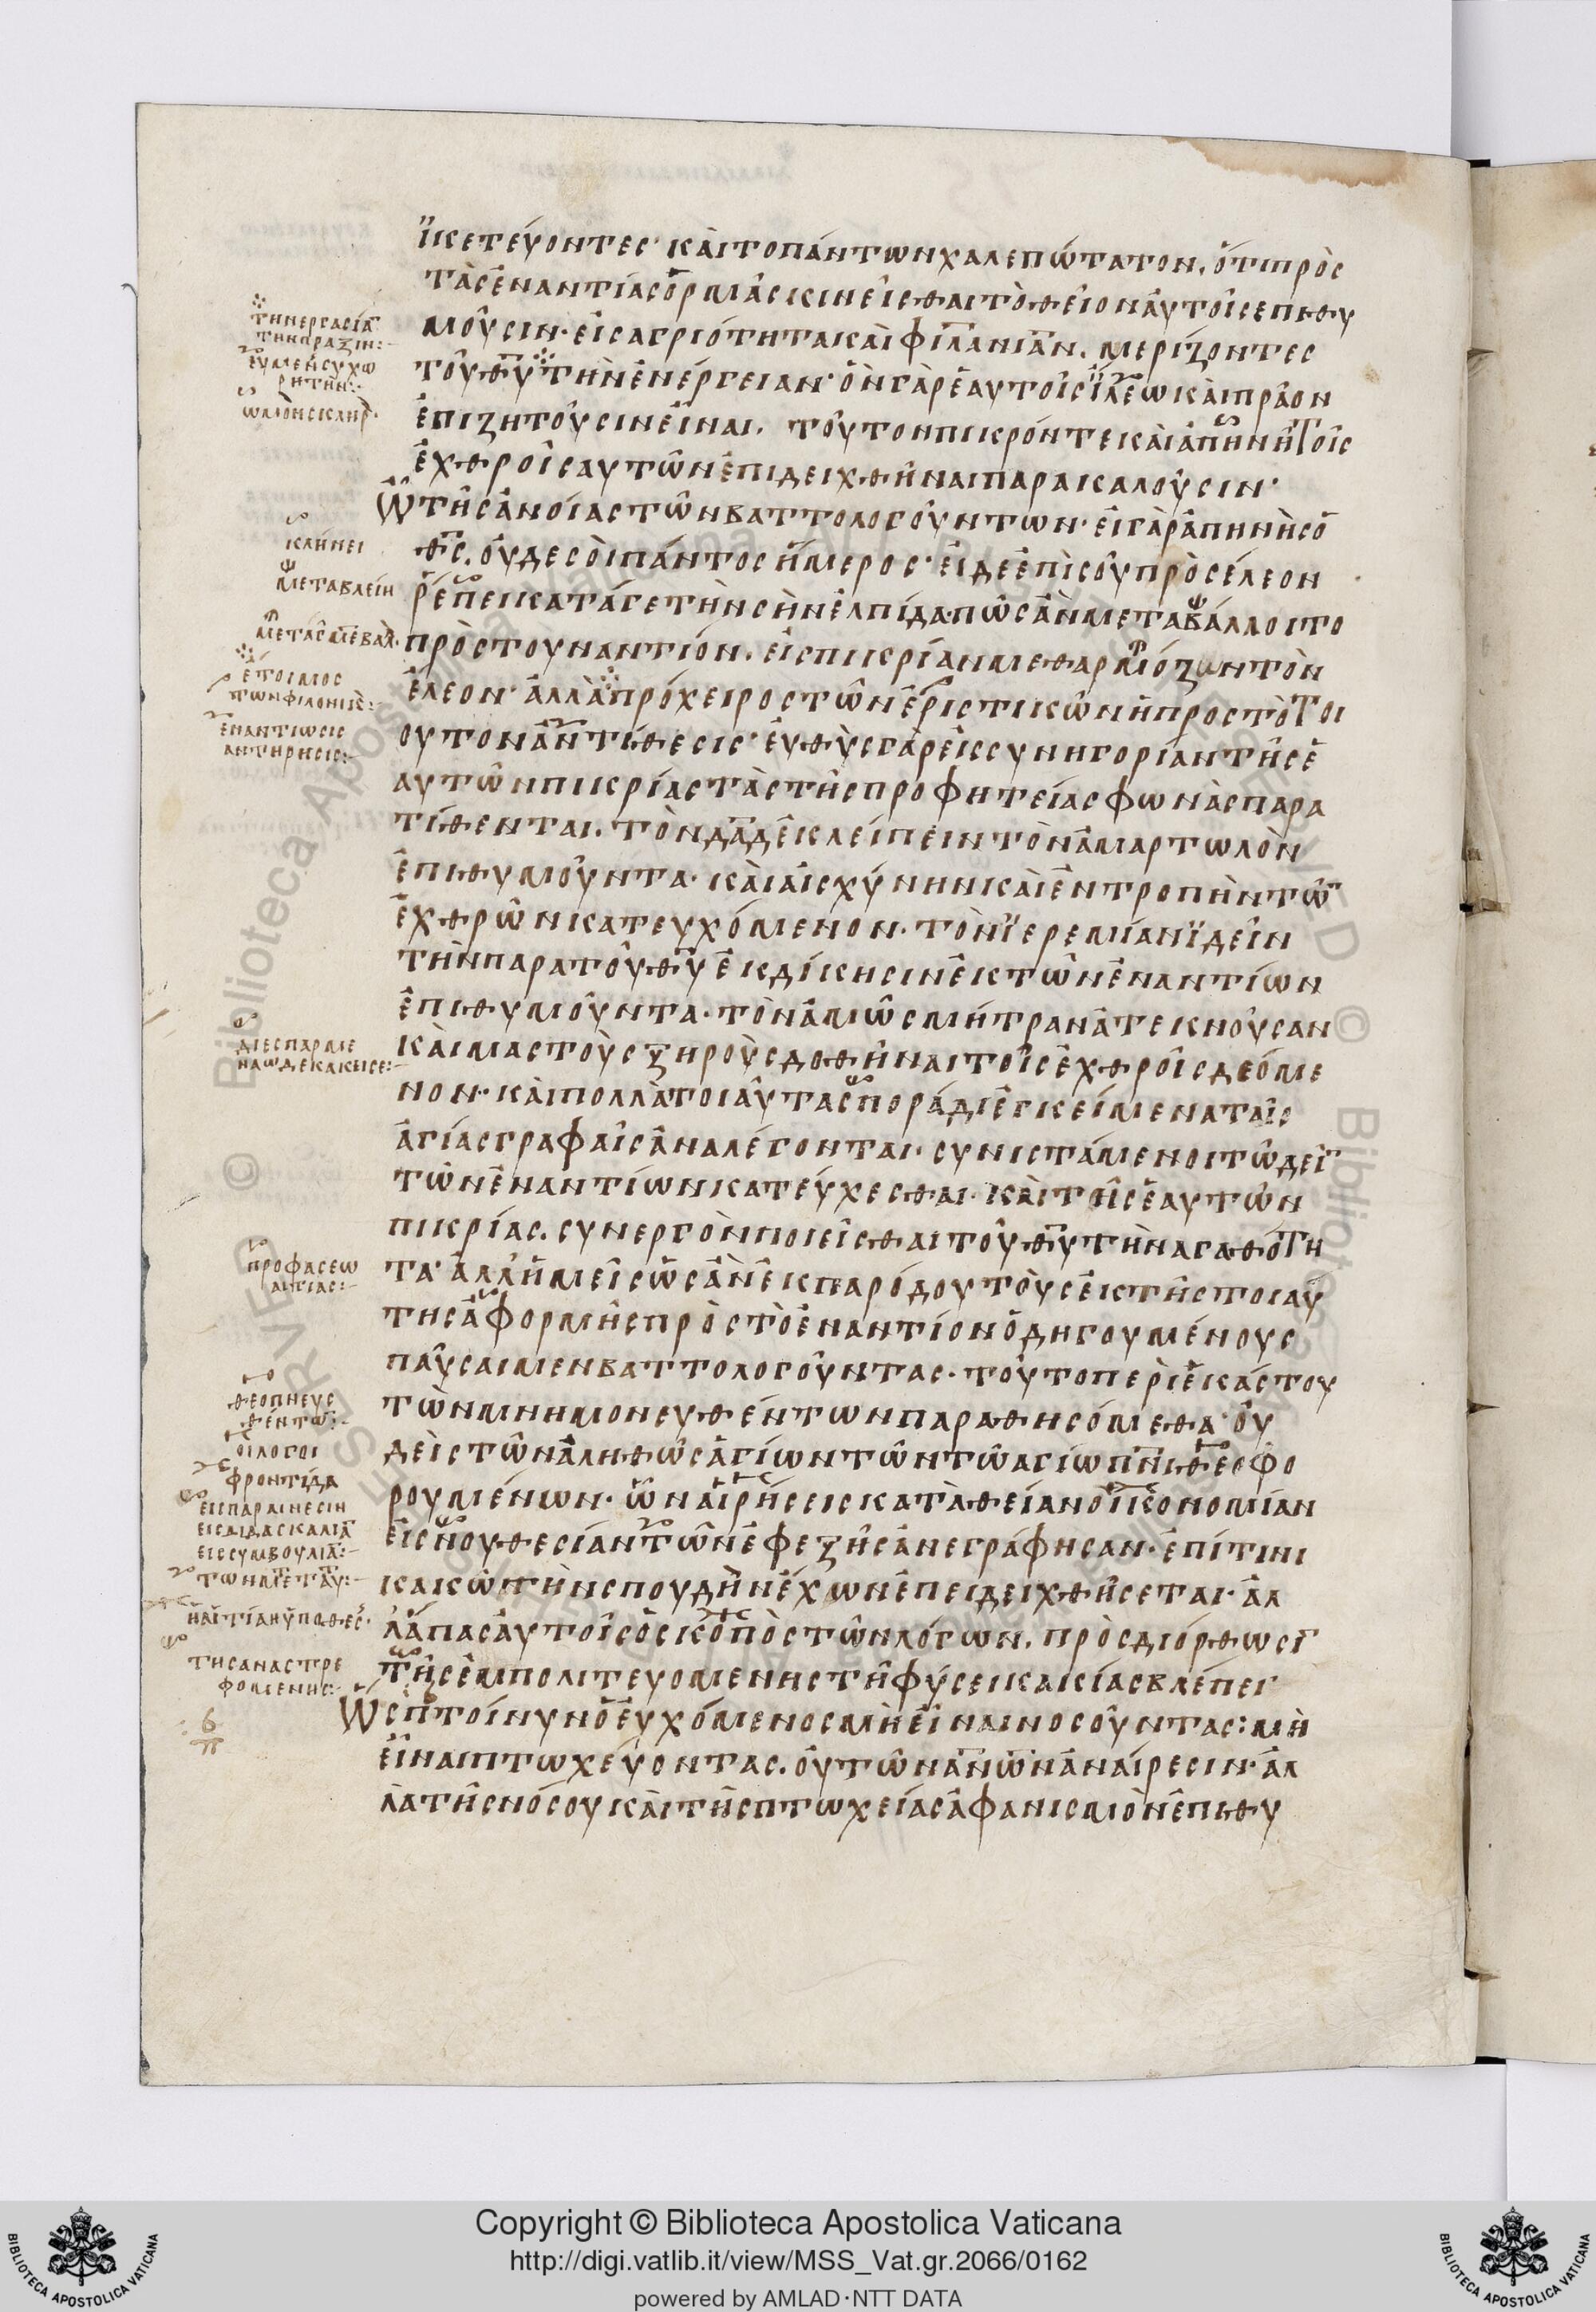 ἱκετεύοντες· καὶ τὸ πάντων χαλεπώτατον, ὅτι πρὸς
τὰς ἐναντίας ὁρμὰς κινεῖσθαι τὸ θεῖον αὐτοῖς ἐπιθυ
μοῦσιν· εἰς ἀγριότητα καὶ φιλανιαν. μερίζοντες
τοῦ θυ τὴν ἐνέργειαν· ὃν γὰρ ἑαυτοῖς ἵλεω καὶ πρᾶον
ἐπιζητοῦσιν εἶναι. τοῦτον πικρόν τε καὶ ἀπηνῆ τοῖς
ἐχθροῖς αὐτῶν ἐπιδειχθῆναι παρακαλοῦσιν·
Ὢ τῆς ἀνοίας τῶν βαττολογούντων· εἰ γὰρ ἀπηνὴς ὁ
θς. οὐδὲ σοὶ πάντως ἥμερος· εἰ δὲ ἐπὶ σοῦ πρὸς ἔλεον
ῥέπει κατά γε τὴν σὴν ἐλπίδα πῶς ἂν μεταβάλλοιτο
πρὸς τοὐναντίον. εἰς πικρίαν μεθαρμόζων τὸν
ἔλεον· ἀλλὰ πρόχειρος τῶν ἐριστικῶν ἡ πρὸς τὸ τοι
οῦτον ἀντίθεσις· εὐθὺς γὰρ εἰς συνηγορίαν τῆς ἑ
αυτῶν πικρίας τὰς τῆς προφητείας φωνὰς παρα
τίθενται. τὸν δαδ ἐκλείπειν τὸν ἁμαρτωλὸν
ἐπιθυμοῦντα· καὶ αἰσχύνην καὶ ἐντροπὴν τῶ
ἐχθρῶν κατευχόμενον· τὸν ἱερεμίαν ἰδεῖν
τὴν παρὰ τοῦ θυ ἐκδίκησιν ἐκ τῶν ἐναντίων
ἐπιθυμοῦντα· τὸν ἀμὼς μήτραν ἀτεκνοῦσαν
καὶ μαστοὺς ξηροὺς δοθῆναι τοῖς ἐχθροῖς δεόμε
νον· καὶ πολλὰ τοιαῦτα σποράδι ἐγκείμενα ταῖς
ἁγίας γραφαῖς ἀναλέγονται· συνιστάμενοι τῶ δεῖ
τῶν ἐναντίων κατεύχεσθαι· καὶ τῆς ἑαυτῶν
πικρίας. συνεργὸν ποιεῖσθαι τοῦ θυ τὴν ἀγαθότη
τα· ἀλλ' ἡμεῖς ὡς ἂν ἐκ παρόδου τοὺς ἐκ τῆς τοιαύ
της ἀφορμῆς πρὸς τὸ ἐναντίον ὁδηγουμένους
παῦσαι μὲν βαττολογοῦντας· τοῦτο περὶ ἑκάστου
τῶν μνημονευθέντων παραθησόμεθα· οὐ
δεὶς τῶν ἀληθῶς ἁγίων τῶν τῶ ἁγίω πνι θεοφο
ρουμένων· ὧν αἱ ῥήσεις κατὰ θείαν οἰκονομίαν
εἰς νουθεσίαν τῶν ἐφεξῆς ἀνεγράφησαν· ἐπί τινι
κακῶ τὴν σπουδὴν ἔχων ἐπειδειχθήσεται· ἀλ
λ' ἅπας αὐτοῖς ὁ σκοπὸς τῶν λόγων. πρὸς διόρθωσι
τῆς ἐμπολιτευομένης τῆ φύσει κακίας βλέπει
Ὥσπ τοίνυν ὁ εὐχόμενος μὴ εἶναι νοσοῦντας· μὴ
εἶναι πτωχεύοντας. οὐ τῶν ανων ἀναίρεσιν· ἀλ
λὰ τῆς νόσου καὶ τῆς πτωχείας ἀφανισμὸν ἐπιθυ
τὴν ἐργασία
τὴν πραξιν:
εὐμενῆ συγχω
ρητὴν:
ὠμὸν σκληρ
κλήνει
μεταβλείη
ἕτοιμος
τῶν φιλονικ:
ἐναντίωσις
ἀντήρησις:
διεσπαρμε
προφάσεω
αἰτίας:
θεοπνευς
θέντω:
οἱ λόγοι
φροντίδα
εἰς παραίνεσιν
εἰς διδασκαλία
εἰς συμβουλία:
τῶν μετ αυ:
ἡ αἰτίαν ὑποθες
τῆς ἀναστρε
φομένης:
© Biblioteca Apostolica Vaticana
Copyright © Biblioteca Apostolica Vaticana
http://digi.vatlib.it/view/MSS_Vat.gr.2066/0162
powered by AMLAD·NTT DATA
BIBLIOTECA APOSTOLICA VATICANA
BIBLIOTECA APOSTOLICA VATICANA